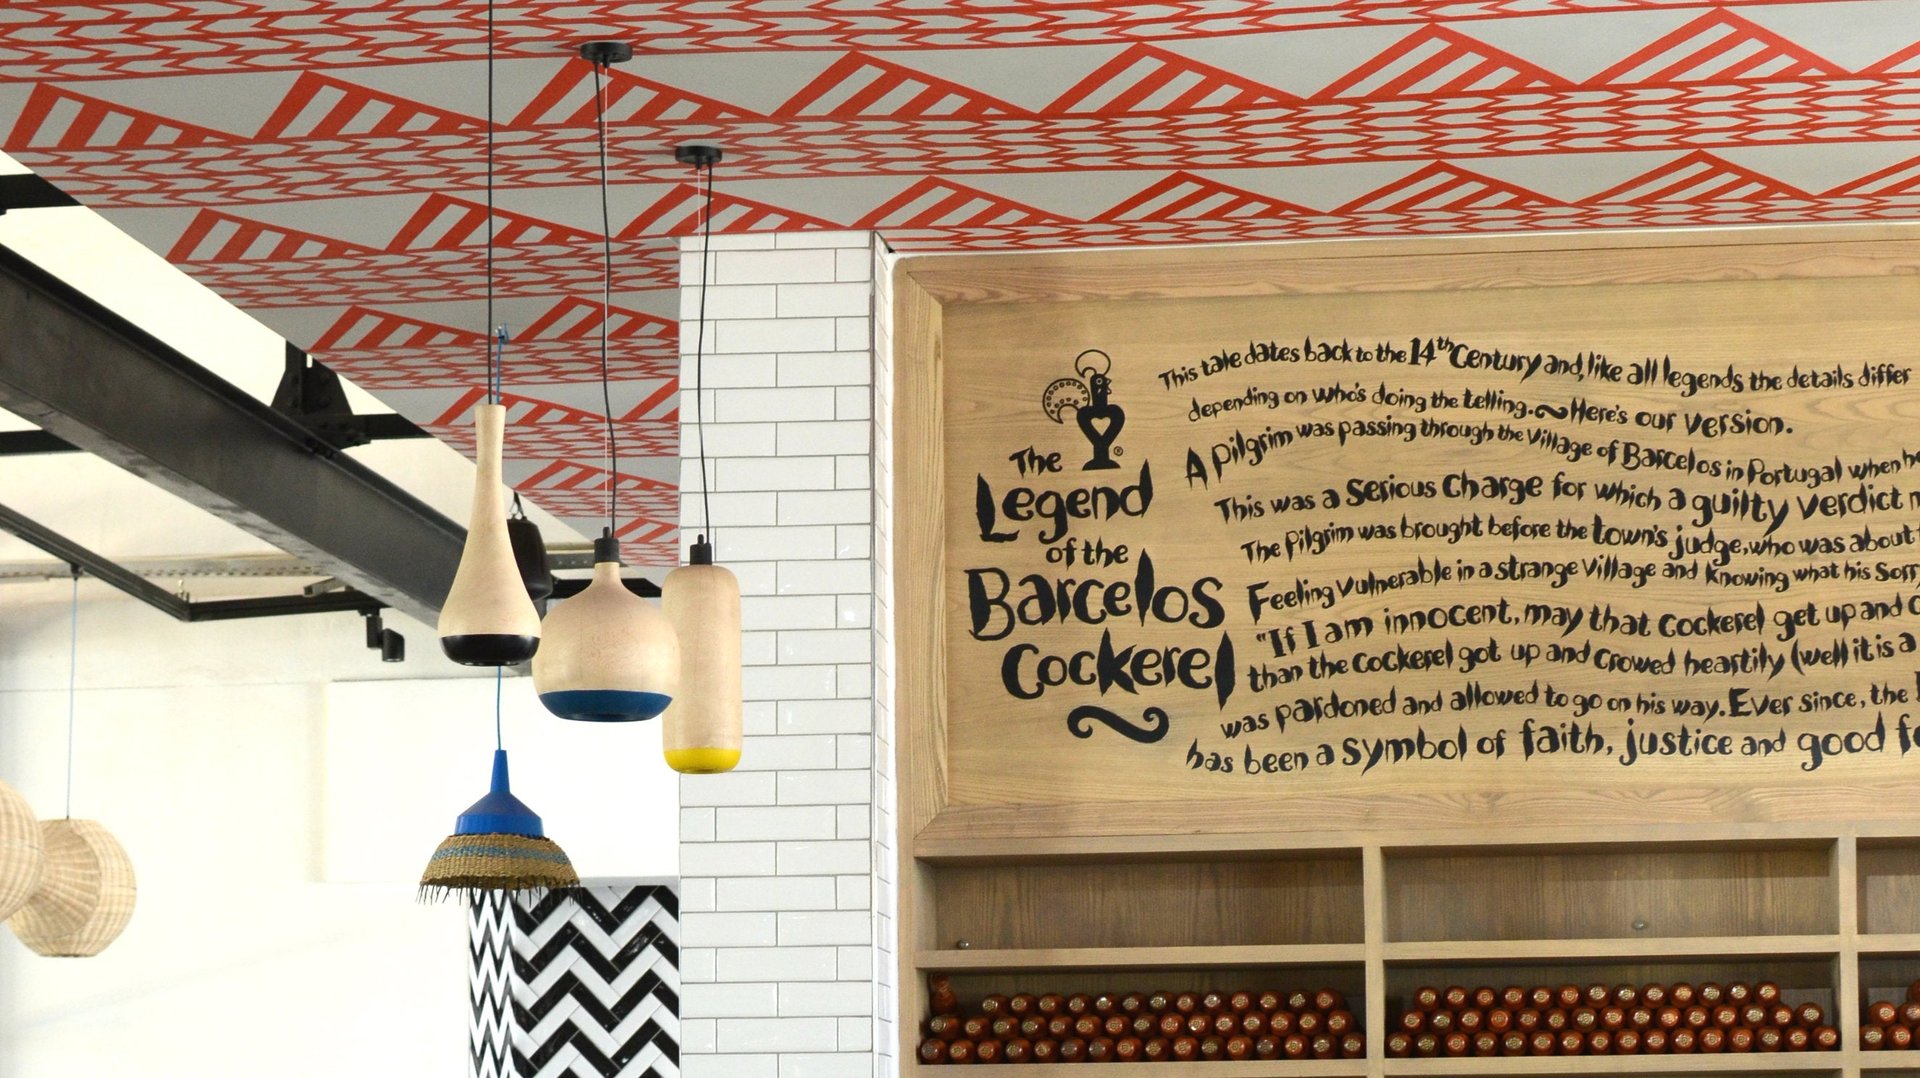 The
Legend
of the
Barcelos
Cockerel
This tale dates back to the 14th Century and, like all legends the details differ
depending on who's doing the telling.~Here's our version.
A pilgrim was passing through the village of Barcelos in Portugal when he
This was a serious charge for which a guilty verdict
The pilgrim was brought before the town's judge, who was about
Feeling vulnerable in a strange village and knowing what his
"If I am innocent, may that cockerel get up and
than the cockerel got up and crowed heartily (well it is a
was pardoned and allowed to go on his way. Ever since, the
has been a symbol of faith, justice and good